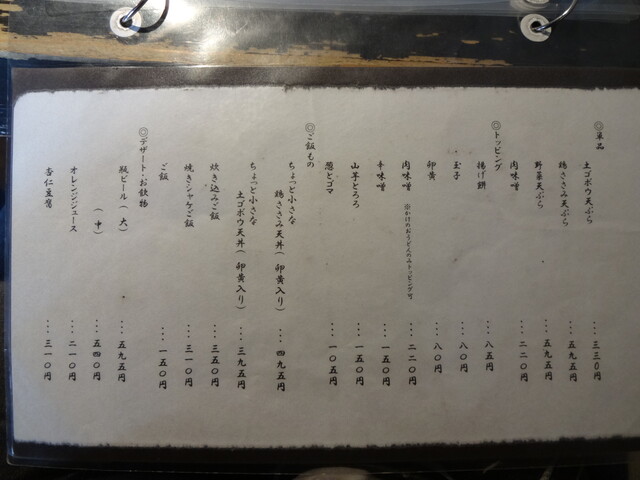 ◎単品
土ゴボウ天ぷら ･･･三三〇円
鶏ささみ天ぷら ･･･五九五円
野菜天ぷら ･･･五九五円
肉味噌 ･･･二二〇円
◎トッピング
揚げ餅 ･･･八五円
玉子 ･･･八〇円
卵黄 ･･･八〇円
肉味噌 ※かけのおうどんのみトッピング可 ･･･二二〇円
辛味噌 ･･･一五〇円
山芋とろろ ･･･一五〇円
葱とゴマ ･･･一〇五円
◎ご飯もの
ちょっと小さな
鶏ささみ天丼(卵黄入り) ･･･四九五円
ちょっと小さな
土ゴボウ天丼(卵黄入り) ･･･三九五円
炊き込みご飯 ･･･三五〇円
焼きシャケご飯 ･･･三一〇円
ご飯 ･･･一五〇円
◎デザート・お飲物
瓶ビール(大) ･･･五九五円
(中) ･･･五四〇円
オレンジジュース ･･･二一〇円
杏仁豆腐 ･･･三一〇円